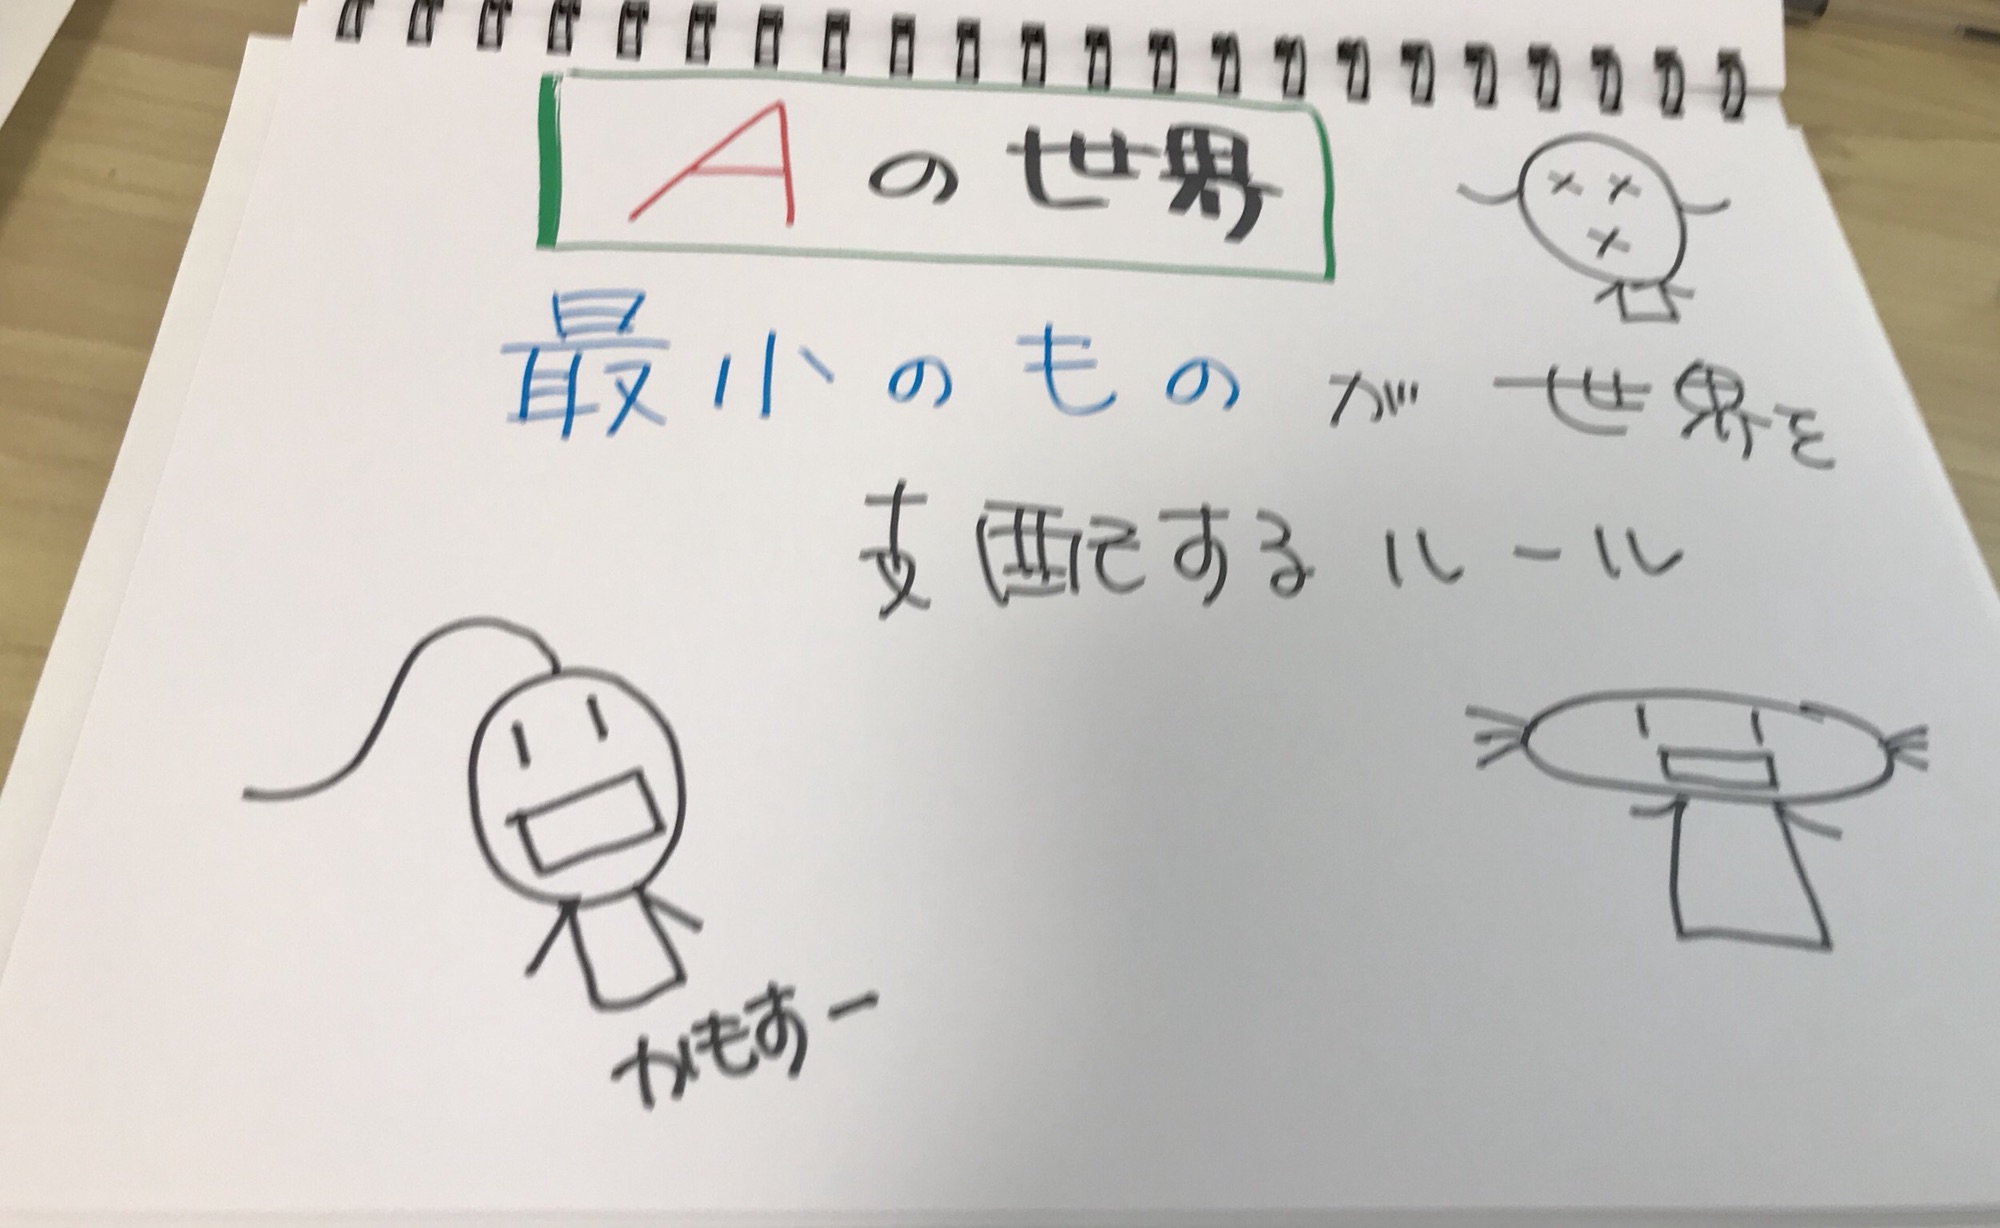 Aの世界
最小のものが世界を
支配するルール
かもすー